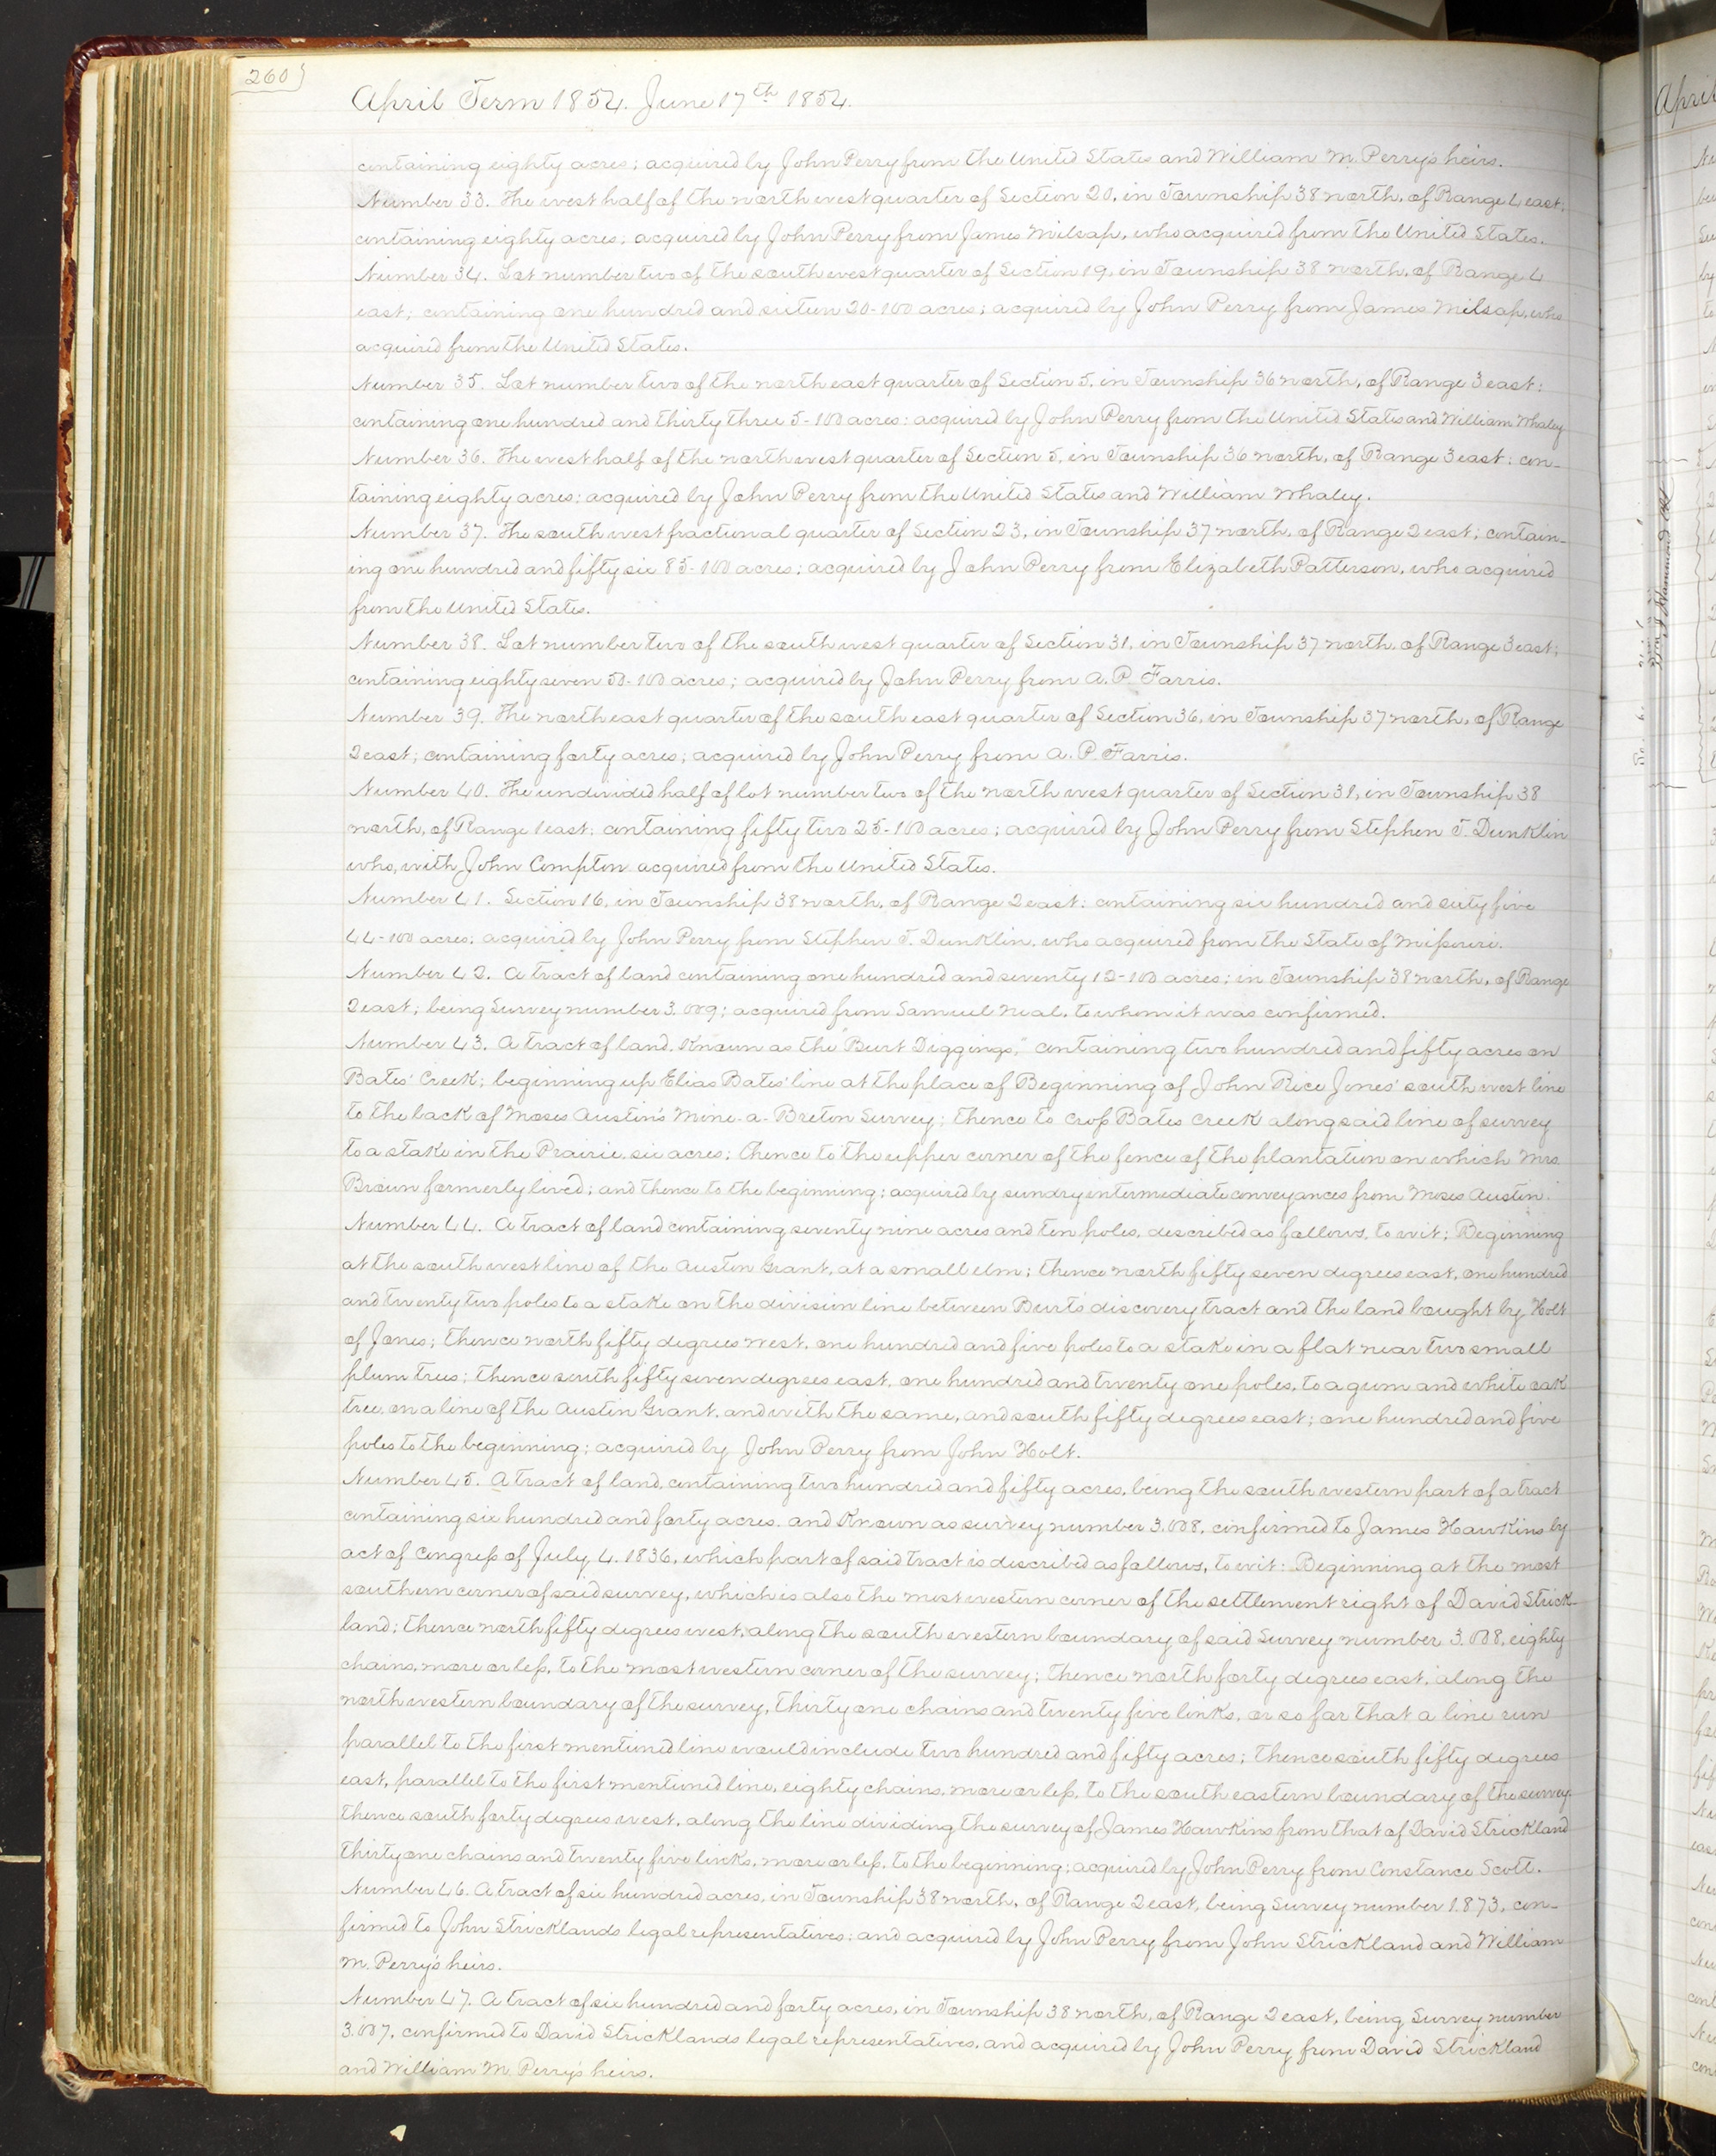 260
April Term 1854. June 17th 1854.
containing eighty acres; acquired by John Perry from the United States and William M. Perry's heirs.
Number 33. The west half of the north west quarter of Section 20, in Township 38 north, of Range 4 east;
containing eighty acres; acquired by John Perry from James Milsap, who acquired from the United States.
Number 34. Lot number two of the south west quarter of Section 19, in Township 38 north, of Range 4
east; containing one hundred and sixteen 20-100 acres; acquired by John Perry from James Milsap, who
acquired from the United States.
Number 35. Lot number two of the north east quarter of Section 5, in Township 36 north, of Range 3 east;
containing one hundred and thirty three 5-100 acres; acquired by John Perry from the United States and William Whaley
Number 36. The west half of the north west quarter of Section 5, in Township 36 north, of Range 3 east; con-
taining eighty acres; acquired by John Perry from the United States and William Whaley.
Number 37. The south west fractional quarter of Section 23, in Township 37 north, of Range 2 east; contain-
ing one hundred and fifty six 85-100 acres; acquired by John Perry from Elizabeth Patterson, who acquired
from the United States.
Number 38. Lot number two of the south west quarter of Section 31, in Township 37 north, of Range 3 east;
containing eighty seven 50-100 acres; acquired by John Perry from A. P. Farris.
Number 39. The north east quarter of the south east quarter of Section 36, in Township 37 north, of Range
2 east; containing forty acres; acquired by John Perry from A. P. Farris.
Number 40. The undivided half of lot number two of the north west quarter of Section 31, in Township 38
north, of Range 1 east; containing fifty two 25-100 acres; acquired by John Perry from Stephen T. Dunklin
who, with John Compton acquired from the United States.
Number 41. Section 16, in Township 38 north, of Range 2 east; containing six hundred and sixty five
44-100 acres; acquired by John Perry from Stephen T. Dunklin, who acquired from the State of Missouri.
Number 42. A tract of land containing one hundred and seventy 12-100 acres; in Township 38 north, of Range
2 east; being Survey number 3.009; acquired from Samuel Neal, to whom it was confirmed.
Number 43. A tract of land, Known as the "Burt Diggings," containing two hundred and fifty acres on
Bates' Creek; beginning up Elias Bates' line at the place of Beginning of John Rice Jones' south west line
to the back of Moses Austin's Mine-a-Breton Survey; thence to cross Bates Creek along said line of survey
to a stake in the Prairie, six acres; thence to the upper corner of the fence of the plantation on which Mrs.
Brown formerly lived; and thence to the beginning; acquired by sundry intermediate conveyances from Moses Austin.
Number 44. A tract of land containing seventy nine acres and ten poles, described as follows, to wit; Beginning
at the south west line of the Austin Grant, at a small elm; thence north fifty seven degrees east, one hundred
and twenty two poles to a stake on the division line between Burt's discovery tract and the land bought by Holt
of Jones; thence north fifty degrees west, one hundred and five poles to a stake in a flat near two small
plum trees; thence south fifty seven degrees east, one hundred and twenty one poles, to a gum and white oak
tree, on a line of the Austin Grant, and with the same, and south fifty degrees east; one hundred and five
poles to the beginning; acquired by John Perry from John Holt.
Number 45. A tract of land, containing two hundred and fifty acres, being the south western part of a tract
containing six hundred and forty acres, and Known as survey number 3.008, confirmed to James Hawkins by
act of Congress of July 4. 1836, which part of said tract is described as follows, to wit: Beginning at the most
southern corner of said survey, which is also the most western corner of the settlement right of David Strick-
land; thence north fifty degrees west, along the south western boundary of said Survey number 3.008, eighty
chains, more or less, to the most western corner of the survey; thence north forty degrees east, along the
north western boundary of the survey, thirty one chains and twenty five links, or so far that a line run
parallel to the first mentioned line would include two hundred and fifty acres; thence south fifty degrees
east, parallel to the first mentioned line, eighty chains, more or less, to the south eastern boundary of the survey
thence south forty degrees west, along the line dividing the survey of James Hawkins from that of David Strickland
thirty one chains and twenty five links, more or less, to the beginning; acquired by John Perry from Constance Scott.
Number 46. A tract of six hundred acres, in Township 38 north, of Range 2 east, being Survey number 1.873, con-
firmed to John Stricklands legal representatives; and acquired by John Perry from John Strickland and William
M. Perry's heirs.
Number 47. A tract of six hundred and forty acres, in Township 38 north, of Range 2 east, being Survey number
3.007, confirmed to David Stricklands legal representatives, and acquired by John Perry from David Strickland
and William M. Perry's heirs.
April